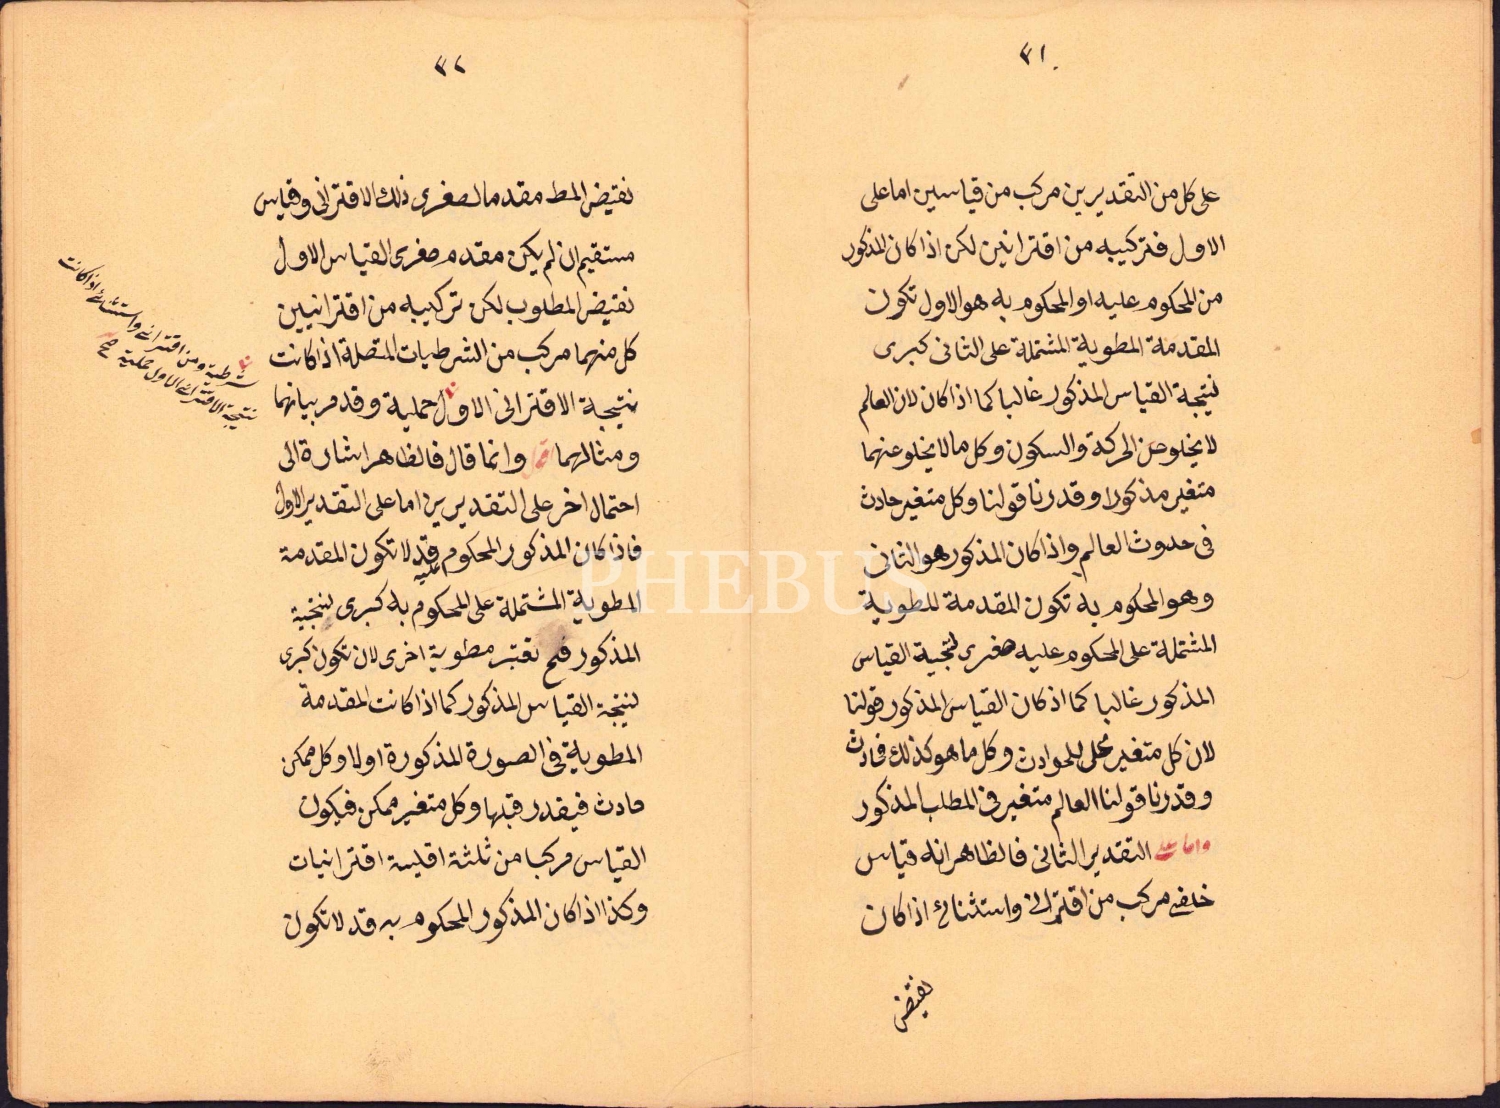 ٣١
على كل من التقديرين مركب من قياسين اما على
الاول فتركيبه من اقترانين لكن اذا كان المذكور
من المحكوم عليه او المحكوم به هو الاول تكون
المقدمة المطوية المشتملة على الثانى كبرى
لنتيجة القياس المذكور غالبا كما اذا كان لان العالم
لا يخلو عن الحركة والسكون وكل ما لا يخلو عنهما
متغير مذكورا وقدرنا قولنا وكل متغير حادث
فى حدوث العالم واذا كان المذكور هو الثانى
وهو المحكوم به تكون المقدمة المطوية
المشتملة على المحكوم عليه صغرى لنتجية القياس
المذكور غالبا كما اذ كان القياس المذكور قولنا
لان كل متغير محل للحوادث وكل ما هو كذلك فحادث
وقدرنا قولنا العالم متغير فى المطلب المذكور
واما على التقدير الثانى فالظاهر انه قياس
خلفى مركب من اقترانى واستثنائى اذا كان
نقيض
٣٢
نقيض المط مقدما لصغرى ذلك الاقترانى وقياس
مستقيم ان لم يكن مقدم صغرى القياس الاول
نقيض المطلوب لكن تركيبه من اقترانيين
كل منهما مركب من الشرطيات المتصلة اذا كانت
نتيجة الاقترانى الاول حملية وقد مر بيانهما
ومثالهما وانما قال فالظاهر اشارة الى
احتمال اخر على التقديرين اما على التقدير الاول
فاذا كان المذكور المحكوم عليه قد لا تكون المقدمة
المطوية المشتملة على المحكوم به كبرى لنتجية
المذكور فح تعتبر مطوية اخرى لان تكون كبرى
لنتيجة القياس المذكور كما اذا كانت المقدمة
المطوية فى الصورة المذكورة اولا وكل ممكن
حادث فيقدر قبلها وكل متغير ممكن فيكون
القياس مركبا من ثلثة اقيسة اقترانيات
وكذا اذا كان المذكور المحكوم به قد لا تكون
شرطية ومن اقترانى واستثنائى اذا كانت
نتيجة الاقترانى الاول حملية صح
PHEBUS